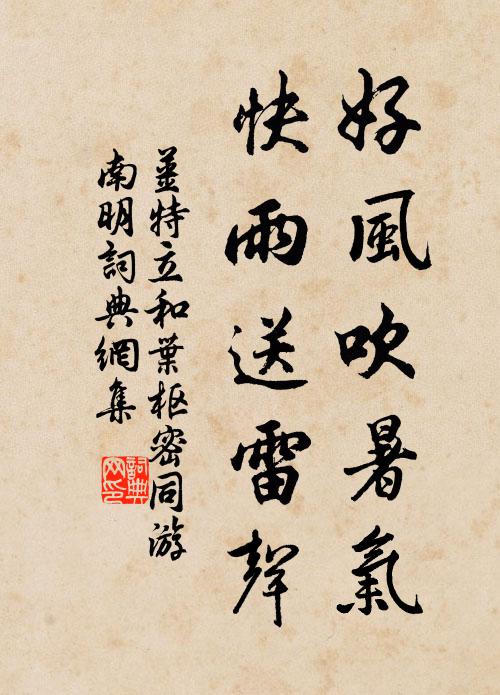 好風吹暑氣
快雨送雷聲
姜特立和葉枢密同游
南明詞典網集
詞典
网印